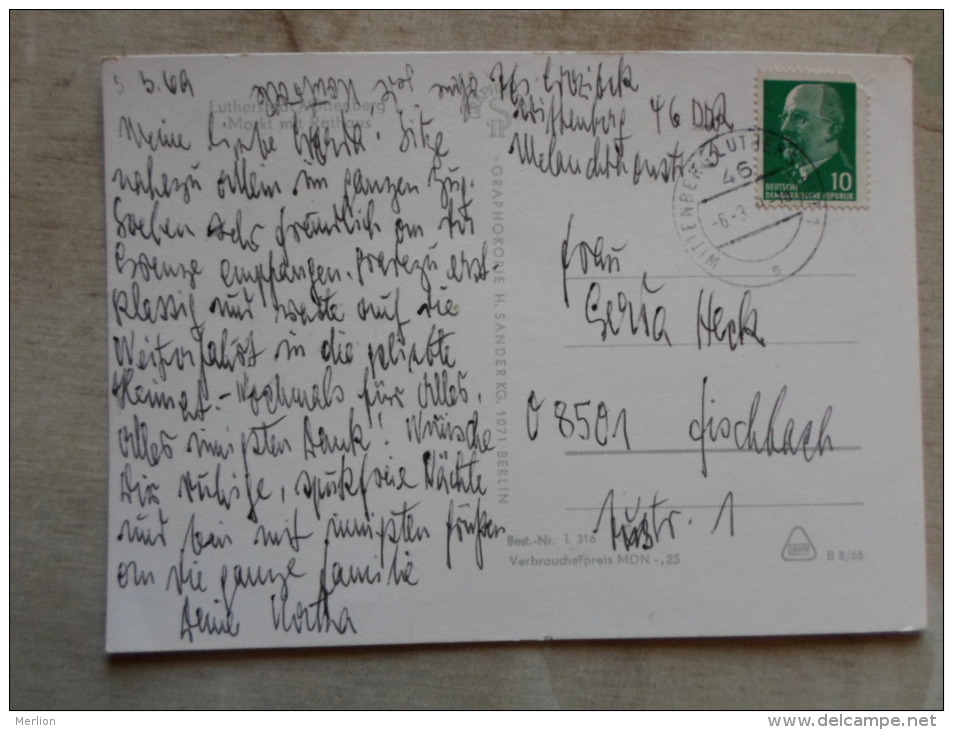 5.3.69
Lutherstadt Wittenberg
Markt mit Rathaus
Wittenberg 46 DDR
Melanchthonstr.
Meine liebe Sitze
nahezu allein im ganzen Zug.
Soeben sehr freundlich an der
Grenze empfangen. Geradezu erst
klassig und warte auf die
Weiterfahrt in die geliebte
Heimat. - Nochmals für Alles,
Alles innigsten Dank! Wünsche
Dir ruhige, spukfreie Nächte
und bin mit innigsten Grüßen
an die ganze Familie
Deine Martha
GRAPHOKOPIE H. SANDER KG, 1071 BERLIN
DEUTSCHE
DEMOKRATISCHE REPUBLIK 10
46
-6.-3
Frau
Gerta Heck
8501 Fischbach
str. 1
Best.-Nr. L 316
Verbraucherpreis MDN -,25
B 8/66
Merlion
www.delcampe.net